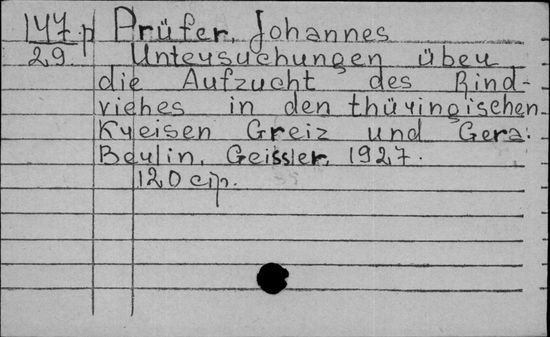 147.p Prüfer, Johannes
29. Untersuchungen über
die Aufzucht des Rind-
viehes in den thüringischen
Kreisen Greiz und Gera.
Berlin, Geissler, 1927.
120 стр.